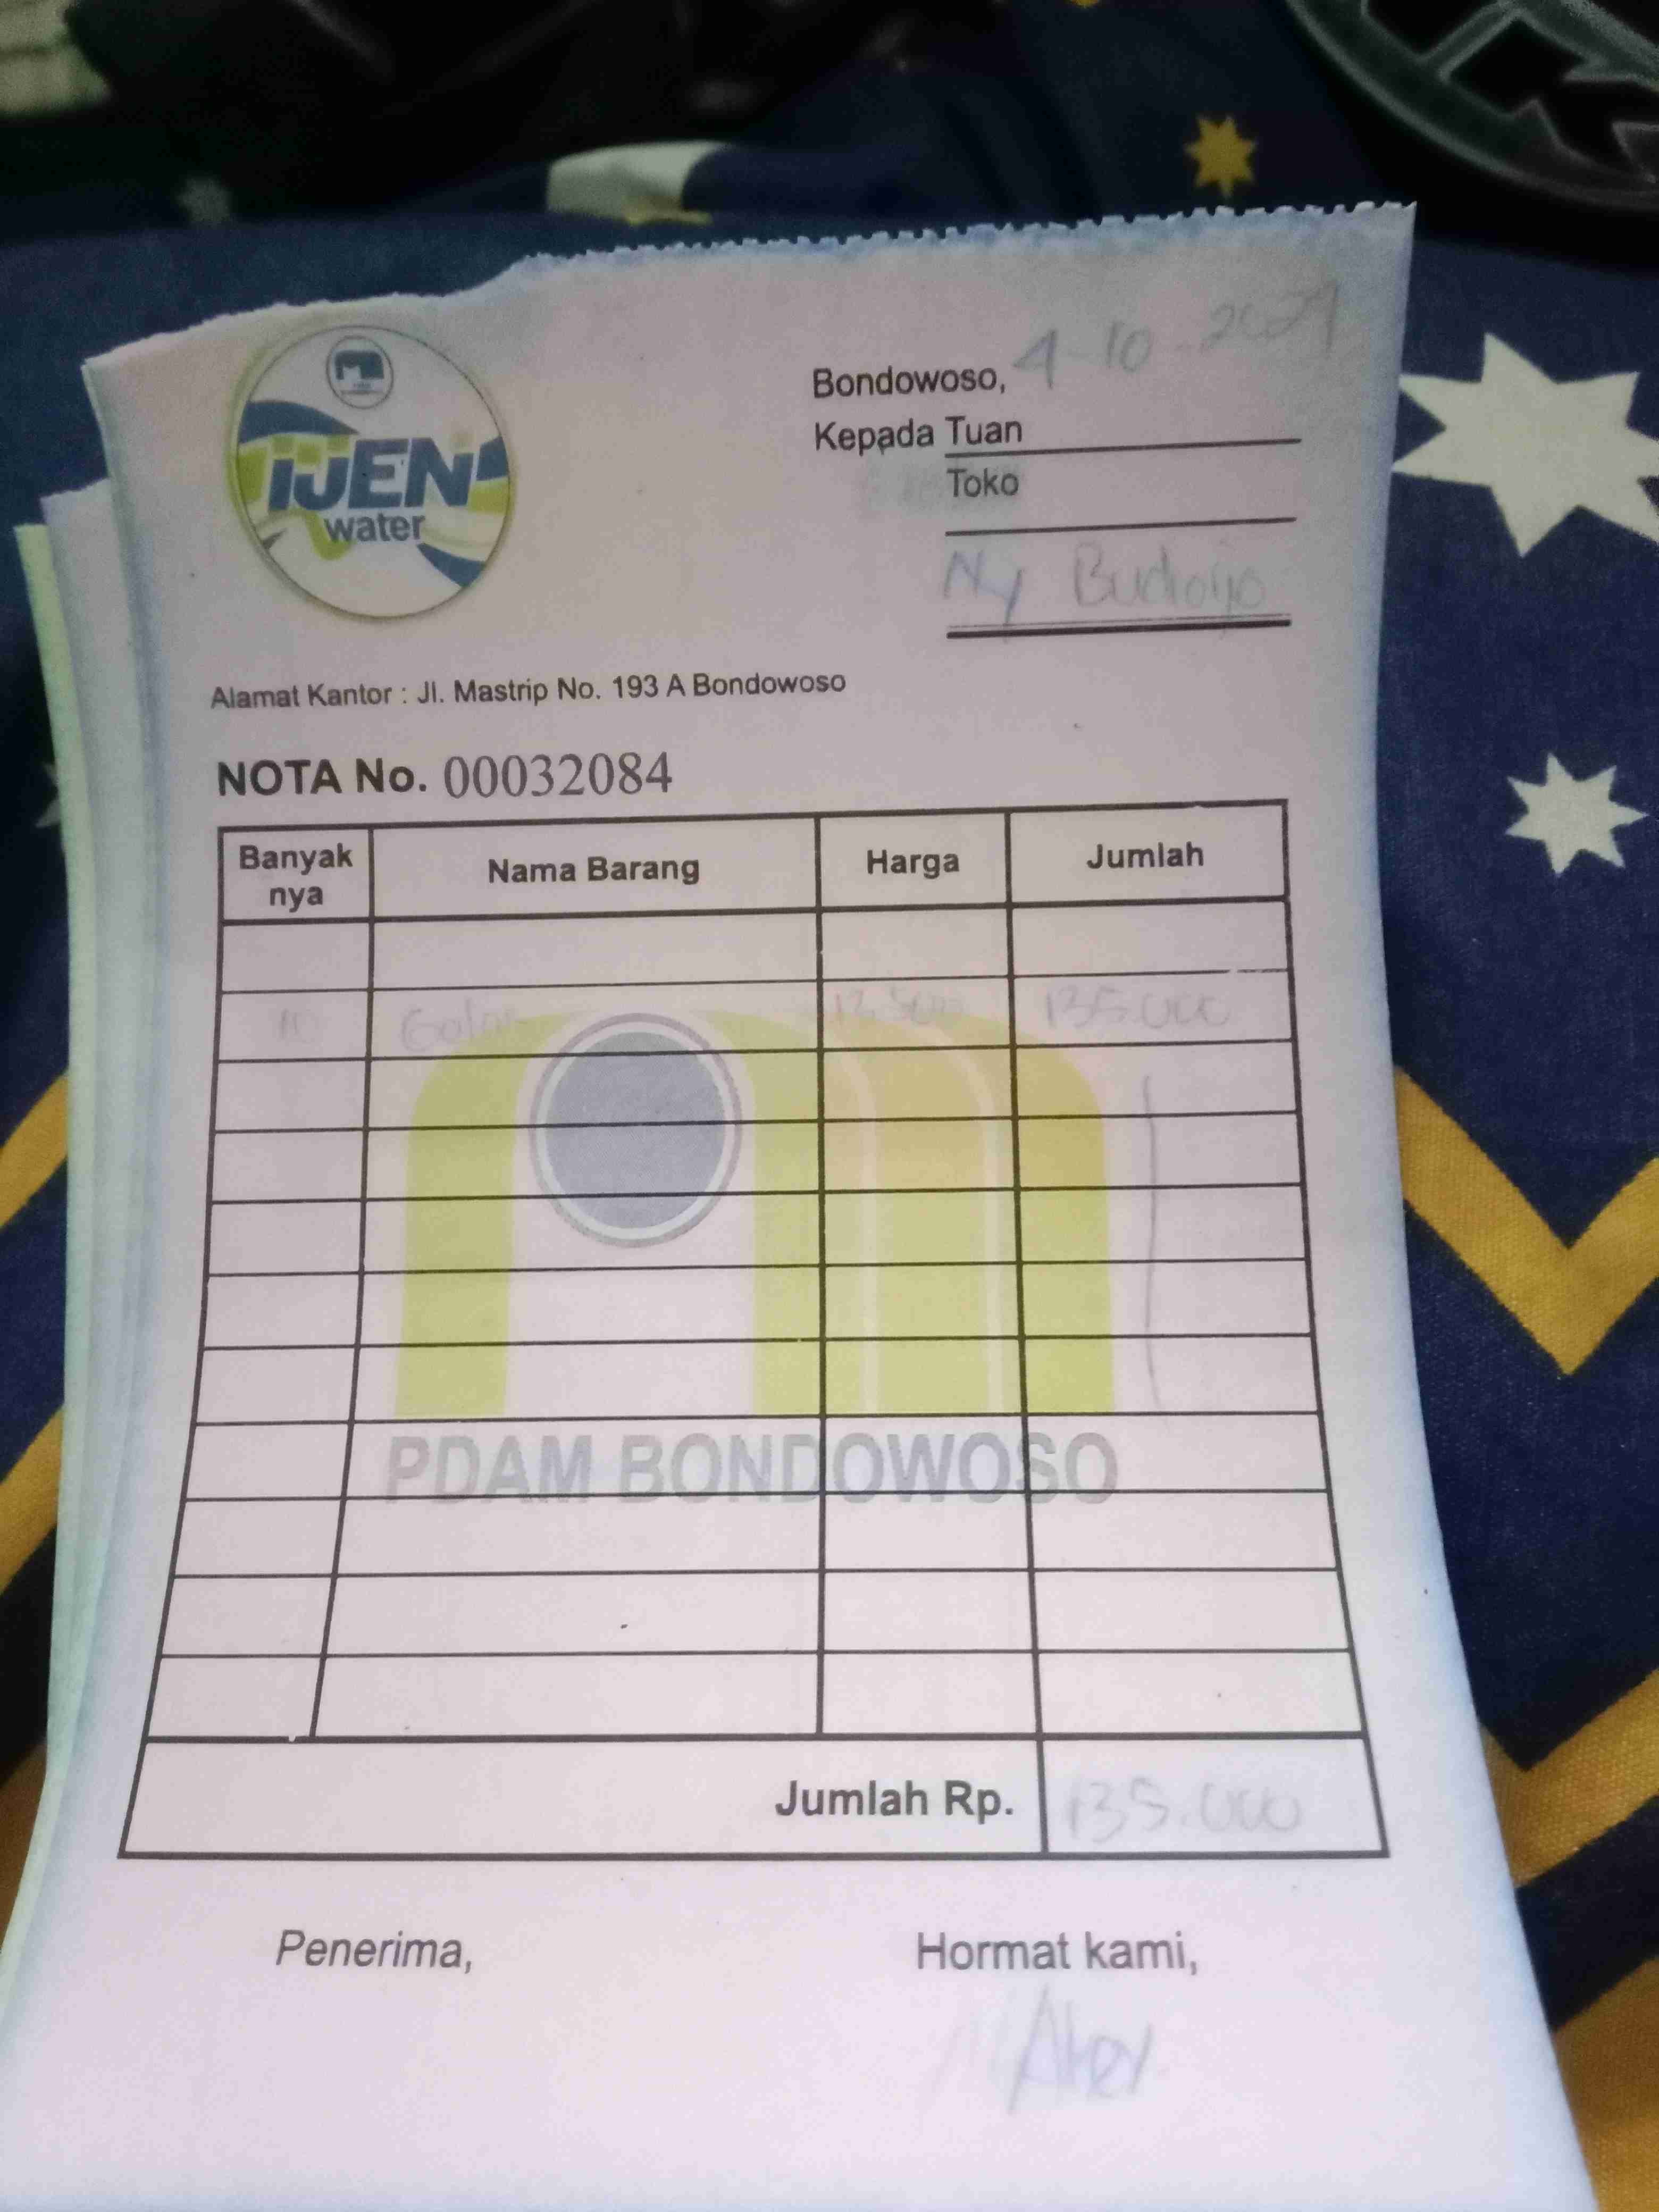 IJEN
water
Bondowoso, 4-10-2021
Kepada Tuan
Toko
Ny
Alamat Kantor : Jl. Mastrip No. 193 A Bondowoso
NOTA No. 00032084
Banyak nya Nama Barang Harga Jumlah
10 Galon 13.500 135.000
PDAM BONDOWOSO
Jumlah Rp. 135.000
Penerima, Hormat kami,